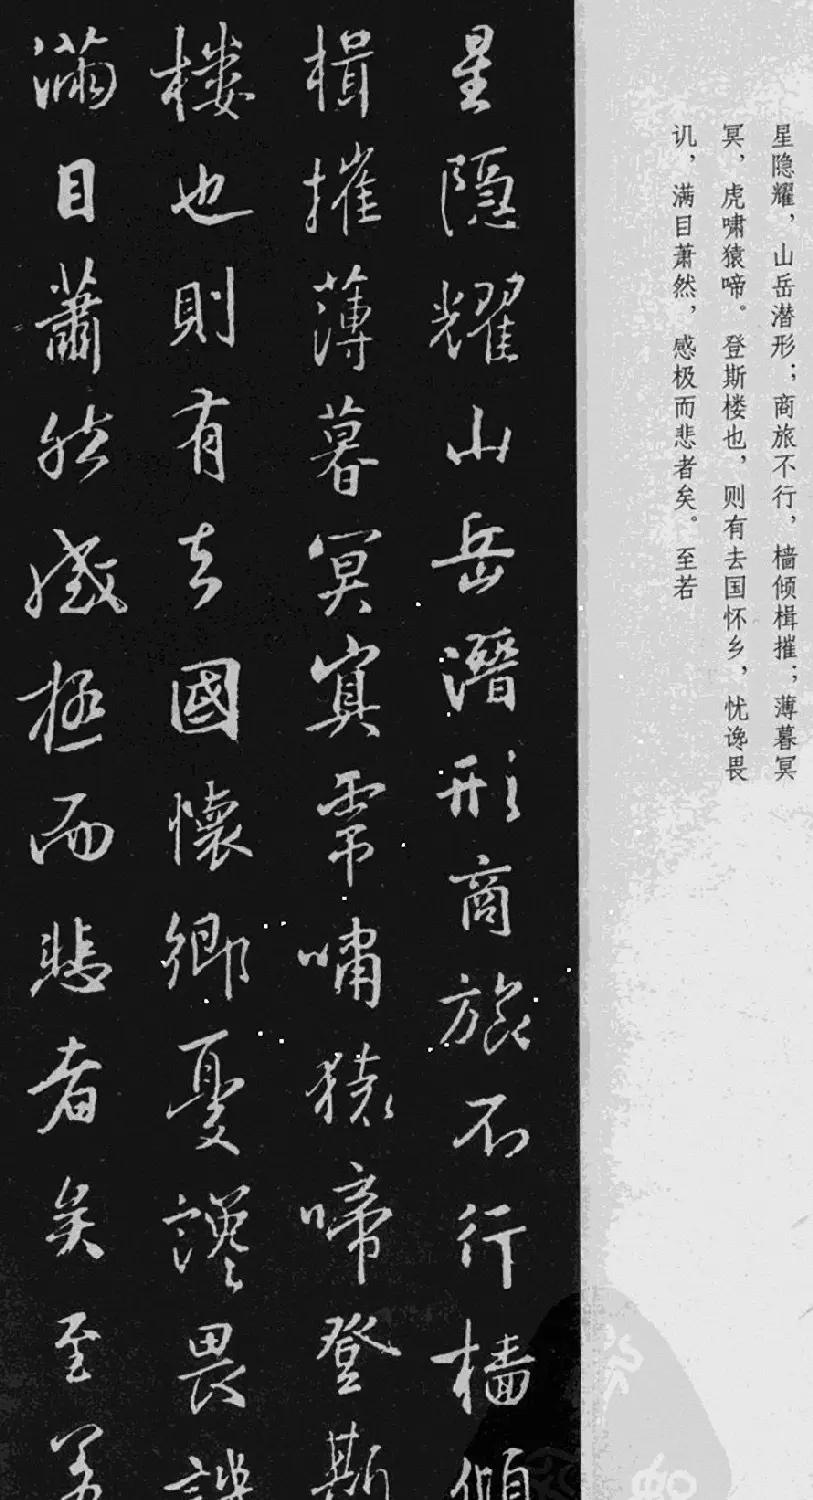 星隐耀，山岳潜形；商旅不行，樯倾楫摧；薄暮冥
冥，虎啸猿啼。登斯楼也，则有去国怀乡，忧谗畏
讥，满目萧然，感极而悲者矣。至若
星隱耀山岳潛形商旅不行檣傾
楫摧薄暮冥冥虎嘯猿啼登斯
樓也則有去國懷鄉憂讒畏譏
滿目蕭然感極而悲者矣至若